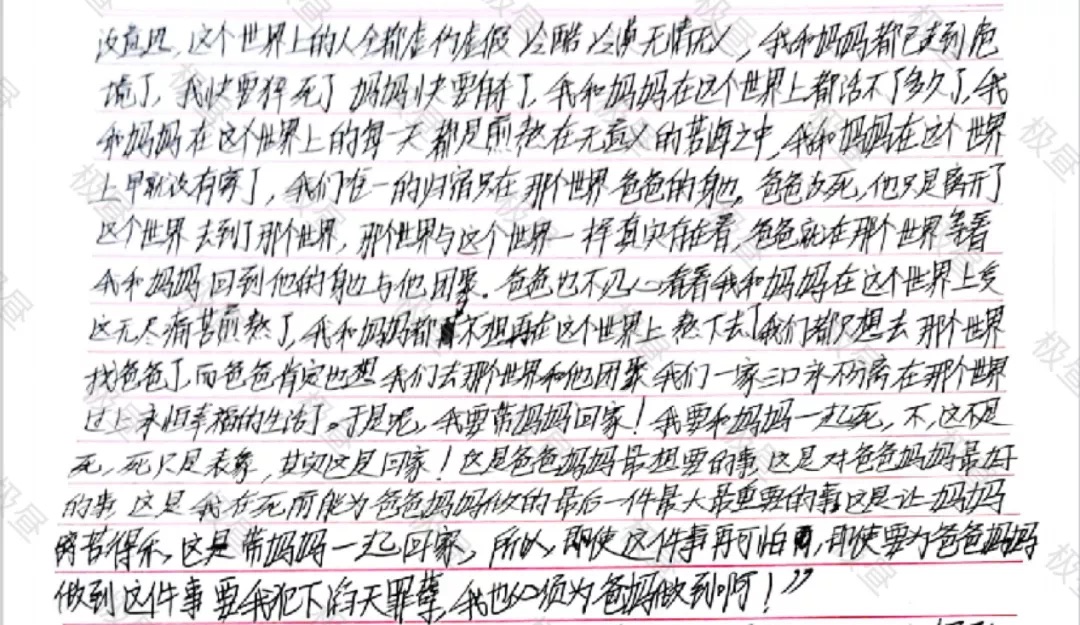 没意思,这个世界上的人全都虚伪虚假冷酷冷漠无情无义,我和妈妈都已走到危
境了,我快要猝死了妈妈快要自杀了,我和妈妈在这个世界上都活不了多久了,我
和妈妈在这个世界上的每一天都是煎熬在无意义的苦海之中,我和妈妈在这个世界
上早就没有家了,我们唯一的归宿只在那个世界爸爸的身边。爸爸没死,他只是离开了
这个世界去到了那个世界,那个世界与这个世界一样真实存在着,爸爸就在那个世界等着
我和妈妈回到他的身边与他团聚。爸爸也不忍心看着我和妈妈在这个世界上受
这无尽痛苦煎熬了,我和妈妈都不想再在这个世界上熬下去了我们都只想去那个世界
找爸爸了而爸爸肯定也想我们去那个世界和他团聚我们一家三口永不分离在那个世界
过上永恒幸福的生活了。于是呢,我要带妈妈回家!我要和妈妈一起死,不,这不是
死,死只是表象,其实这是回家!这是爸爸妈妈最想要的事这是对爸爸妈妈最好
的事这是我在死前能为爸爸妈妈做的最后一件最大最重要的事这是让妈妈
离苦得乐,这是带妈妈一起回家,所以,即使这件事再可怕,即使要为爸爸妈妈
做到这件事要我犯下滔天罪孽,我也必须为爸妈做到啊!”
极昼